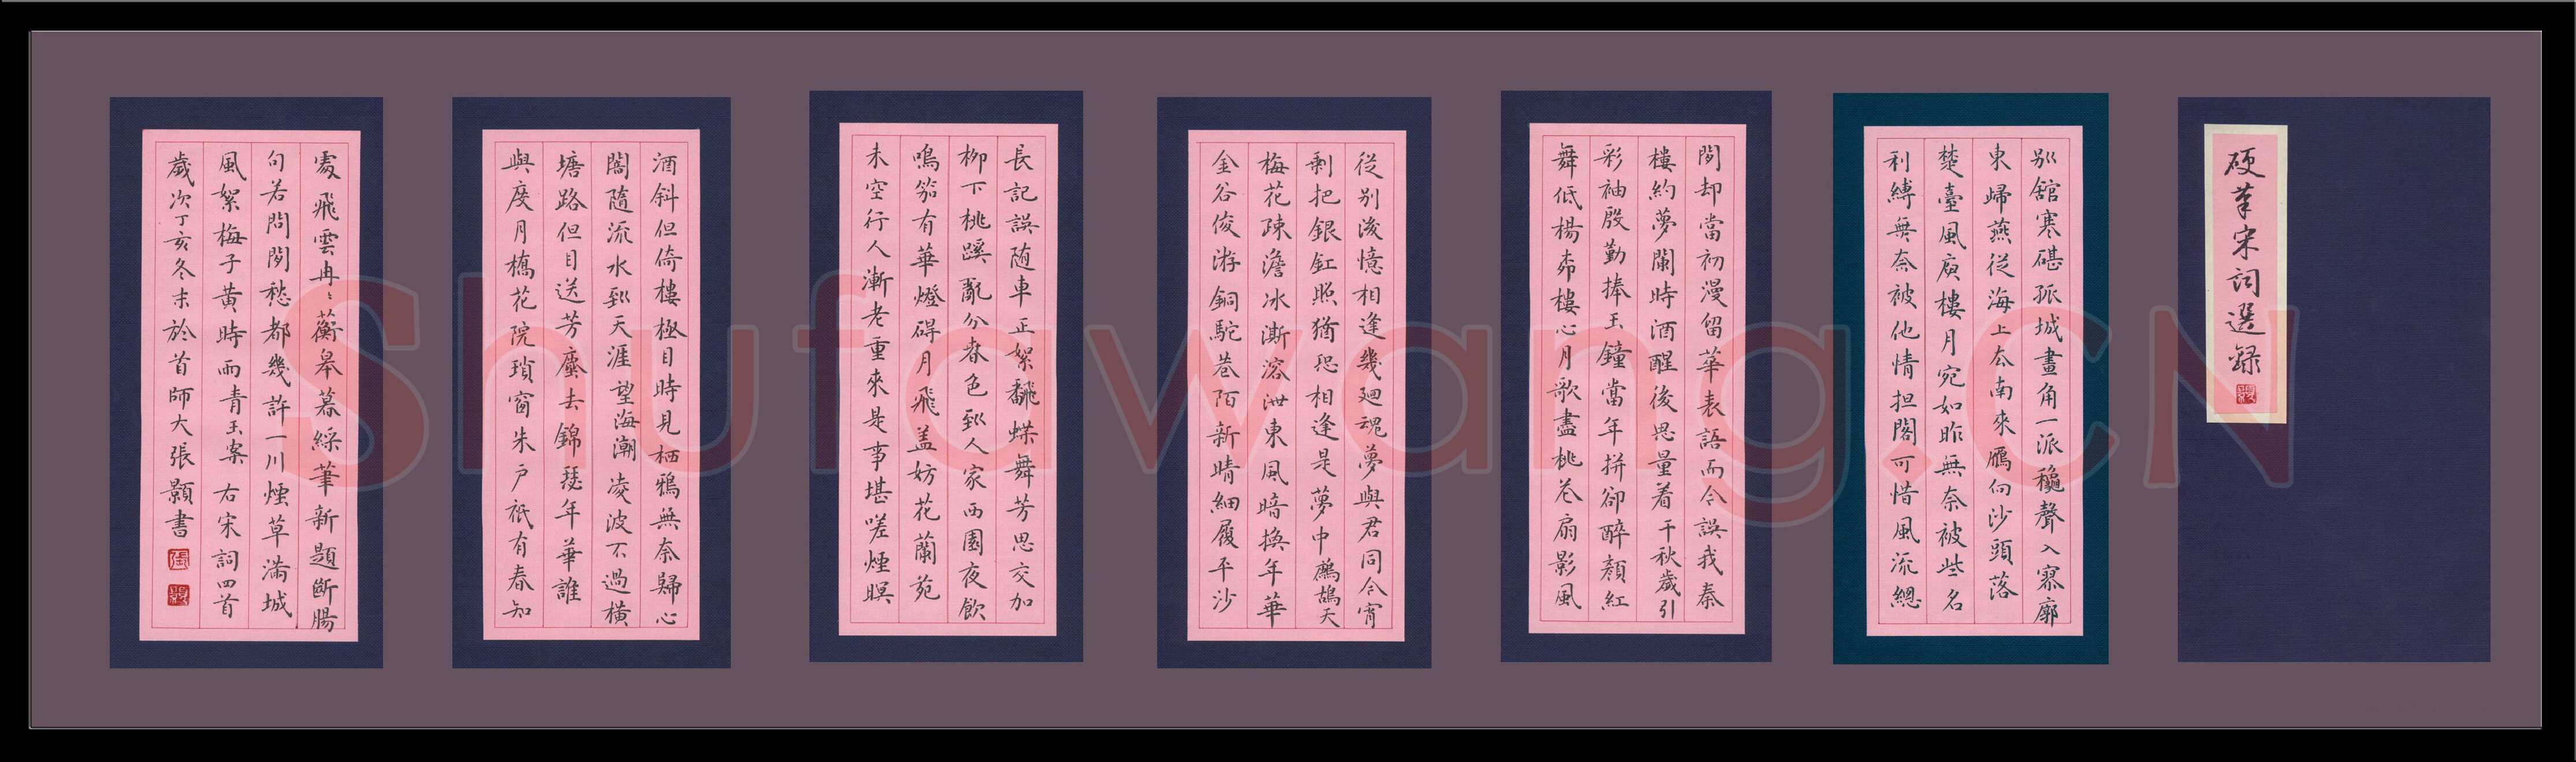 硬筆宋詞選録
別舘寒砧孤城畫角一派秋聲入寥廓
東歸燕從海上去南來鴈向沙頭落
楚臺風庾樓月宛如昨無奈被些名
利縛無奈被他情担閣可惜風流總
閒却當初漫留華表語而今誤我秦
樓約夢闌時酒醒後思量着千秋歲引
彩袖殷勤捧玉鐘當年拼卻醉顏紅
舞低楊柳樓心月歌盡桃花扇影風
從别後憶相逢幾廻魂夢與君同今宵
剩把銀釭照猶恐相逢是夢中鷓鴣天
梅花疎澹冰澌溶泄東風暗換年華
金谷俊游銅駝巷陌新晴細履平沙
長記誤随車正絮翻蝶舞芳思交加
柳下桃蹊亂分春色到人家西園夜飲
鳴笳有華燈碍月飛盖妨花蘭苑
未空行人漸老重來是事堪嗟煙暝
酒斜但倚樓極目時見栖鴉無奈歸心
闇隨流水到天涯望海潮凌波不過橫
塘路但目送芳塵去錦瑟年華誰
與度月橋花院瑣窗朱戶衹有春知
處飛雲冉〻蘅皋慕綵筆新題斷腸
句若問閒愁都幾許一川煙草滿城
風絮梅子黃時雨青玉案右宋詞四首
歲次丁亥冬末於首師大張顥書
Shufawang.CN